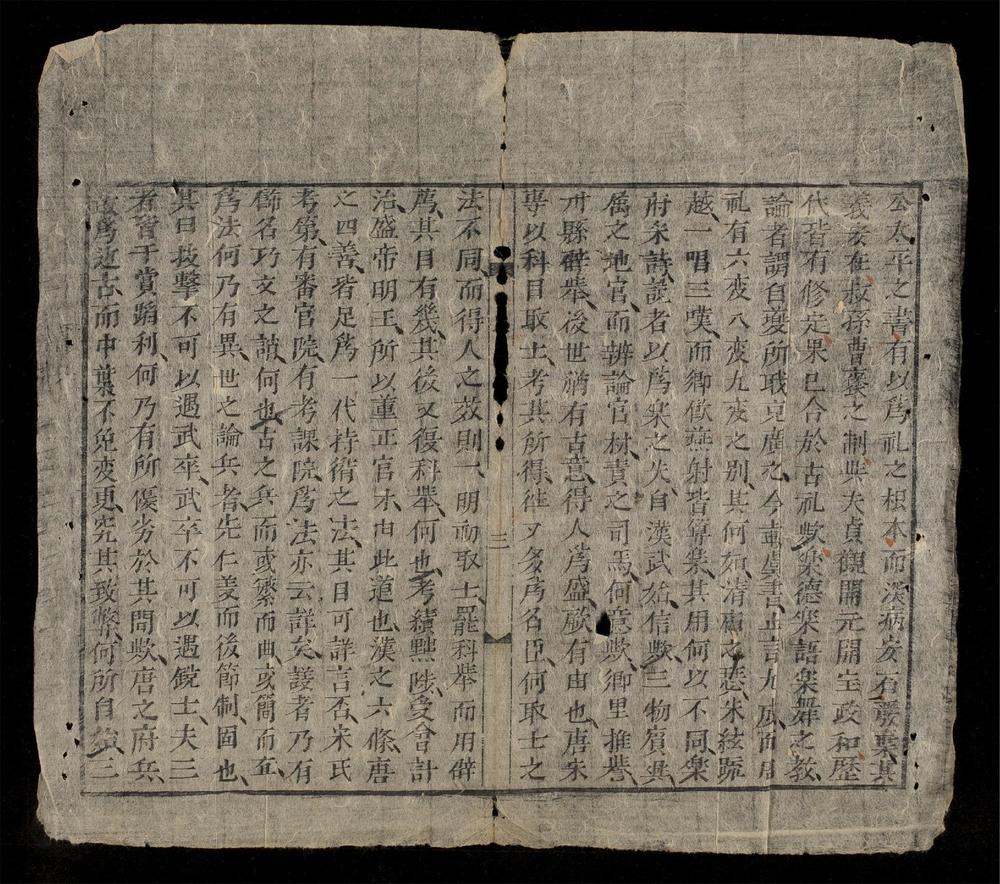 公太平之書有以爲礼之根本而深病矣有嚴棄其
義安在叔孫曹褒之制與夫貞觀開元開宝政和歷
代皆有修定果已合於古礼欤楽德楽語楽舞之教
論者謂自夔所職克廣之今載虞書止言九成而周
礼有六变八变九变之别其何如清廟之瑟朱絃疏
越一唱三嘆而卿飲燕射皆導楽其用何以不同楽
府采詩說者以爲楽之失自漢武始信欤三物賓興
属之地官而辨論官材責之司馬何意欤卿里推誉
州縣辟舉後世猶有古意得人爲盛欤有由也唐宋
專以科目取士考其所得徃又多爲名臣何取士之
三
法不同而得人之效則一明初取士罷科舉而用辟
薦其目有幾其後又復科舉何也考績黜陟受會計
治盛帝明王所以董正官才由此道也漢之六條唐
之四善皆足爲一代持衡之法其目可詳言否宋氏
考第有審官院有考課院爲法亦云詳矣議者乃有
餙名巧文之誚何也古之兵而或繁而曲或簡而直
爲法何乃有異世之論兵者先仁義而後節制固也
其曰技擊不可以遇武卒武卒不可以遇鋭士夫三
者皆干賞蹈利何乃有所優劣於其間欤唐之府兵
議爲近古而中葉不免变更究其致弊何所自三